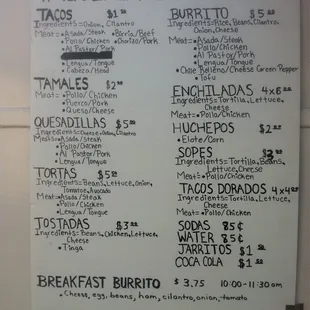 TACOS $1
Ingredients=Onion, Cilantro
Meat=•Asada/Steak •Birria/Beef
•Pollo/Chicken •Chorizo/Pork
Al Pastor/Pork
•Lengua/Tongue
•Cabeza/Head
TAMALES $2
Meat=•Pollo/Chicken
•Puerco/Pork
•Queso/Cheese
QUESADILLAS $5
Ingredients=Cheese, Onion, Cilantro
Meat=•Asada/Steak
•Pollo/Chicken
•Al Pastor/Pork
•Lengua/Tongue
TORTAS $5
Ingredients=Beans, Lettuce, Onion,
Tomatoe, Avocado
Meat=•Asada/Steak
•Pollo/Chicken
•Lengua/Tongue
TOSTADAS $3
Ingredients=beans, Chicken, Lettuce,
Cheese
•Tinga
BURRITO $5
Ingredients=Rice, Beans, Cilantro,
Onion, Cheese
Meat=•Asada/Steak
•Pollo/Chicken
•Al Pastor/Pork
•Lengua/Tongue
•Chile Relleno/Cheese Green Pepper
•Tofu
ENCHILADAS 4x6
Ingredients=Tortilla, Lettuce,
Cheese
Meat=•Pollo/Chicken
HUCHEPOS $2
•Elote/Corn
SOPES $2
Ingredients=Tortilla, Beans,
Lettuce, Cheese
Meat=•Pollo/Chicken
TACOS DORADOS 4x4
Ingredients=Tortilla, Lettuce,
Cheese
Meat=•Pollo/Chicken
SODAS 85¢
WATER 85¢
JARRITOS $1
COCA COLA $1
BREAKFAST BURRITO $3.75 10:00-11:30am
•Cheese, egg, beans, ham, cilantro, onion, tomato